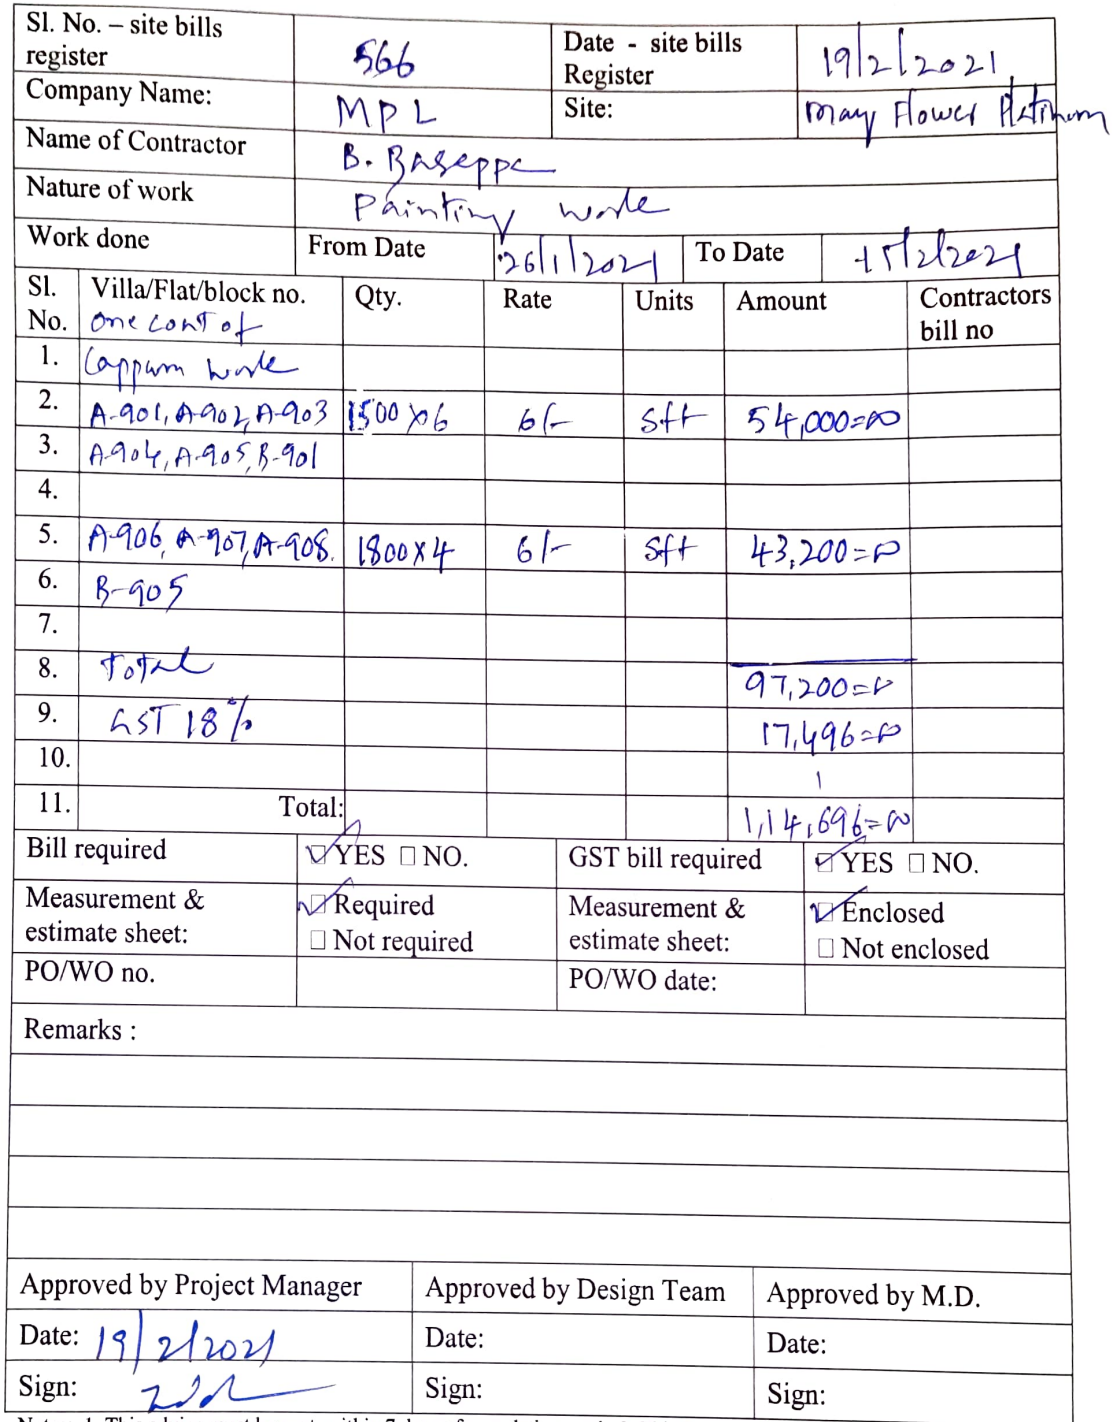 Sl. No. – site bills register 566 Date - site bills Register 19/2/2021
Company Name: MPL Site: May Flower Platinum
Name of Contractor B. Baseppa
Nature of work Painting work
Work done From Date 26/1/2021 To Date 15/2/2021
Sl. No. Villa/Flat/block no. Qty. Rate Units Amount Contractors bill no
one coat of
1. Lappum work
2. A-901, A-902, A-903 1500 x 6 6/- sft 54,000=00
3. A-904, A-905, B-901
4.
5. A-906, A-907, A-908. 1800 x 4 6/- sft 43,200=00
6. B-905
7.
8. Total 97,200=00
9. GST 18% 17,496=00
10.
11. Total: 1,14,696=00
Bill required ☑ YES ☐ NO. GST bill required ☑ YES ☐ NO.
Measurement & estimate sheet: ☑ Required ☐ Not required Measurement & estimate sheet: ☑ Enclosed ☐ Not enclosed
PO/WO no. PO/WO date:
Remarks :
Approved by Project Manager Approved by Design Team Approved by M.D.
Date: 19/2/2021 Date: Date:
Sign: Sign: Sign: